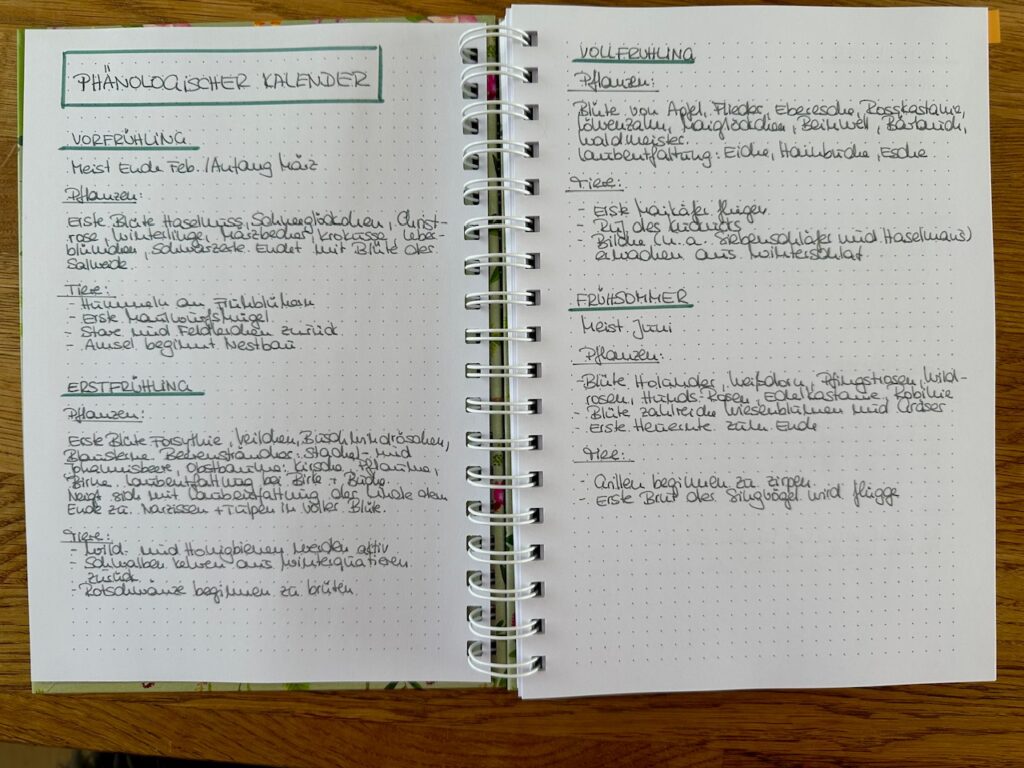 PHÄNOLOGISCHER KALENDER
VORFRÜHLING
Meist Ende Feb. /Anfang März
Pflanzen:
Erste Blüte Haselnuss, Schneeglöckchen, Christ-
rose, Winterlinge, Märzbecher, Krokusse, Leber-
blümchen, Schwarzerle. Endet mit Blüte der
Salweide.
Tiere:
- Hummeln an Frühblühern
- Erste Maulwurfshügel
- Stare und Feldlerchen zurück
- Amsel beginnt Nestbau
ERSTFRÜHLING
Pflanzen:
Erste Blüte Forsythie, Veilchen, Buschwindröschen,
Blausterne. Beerensträucher: Stachel- und
Johannisbeere, Obstbäume: Kirsche, Pflaume,
Birne. Laubentfaltung bei Birke + Buche.
Neigt sich mit Laubentfaltung der Linde dem
Ende zu. Narzissen + Tulpen in voller Blüte.
Tiere:
- Wild- und Honigbienen werden aktiv
- Schwalben kehren aus Winterquatieren
zurück
- Rotschwänze beginnen zu brüten
VOLLFRÜHLING
Pflanzen:
Blüte von Apfel, Flieder, Eberesche, Rosskastanie,
Löwenzahn, Maiglöckchen, Beinwell, Bärlauch,
Waldmeister.
Laubentfaltung: Eiche, Hainbuche, Esche.
Tiere:
- Erste Maikäfer fliegen
- Ruf des Kuckucks
- Bilche (u.a. Siebenschläfer und Haselmaus)
erwachen aus Winterschlaf.
FRÜHSOMMER
Meist Juni
Pflanzen:
- Blüte Holunder, Weißdorn, Pfingstrosen, Wild-
rosen, Hunds-Rosen, Edelkastanie, Robinie
- Blüte zahlreiche Wiesenblumen und Gräser
- Erste Heuernte zum Ende
Tiere:
- Grillen beginnen zu zirpen
- Erste Brut der Singvögel wird flügge